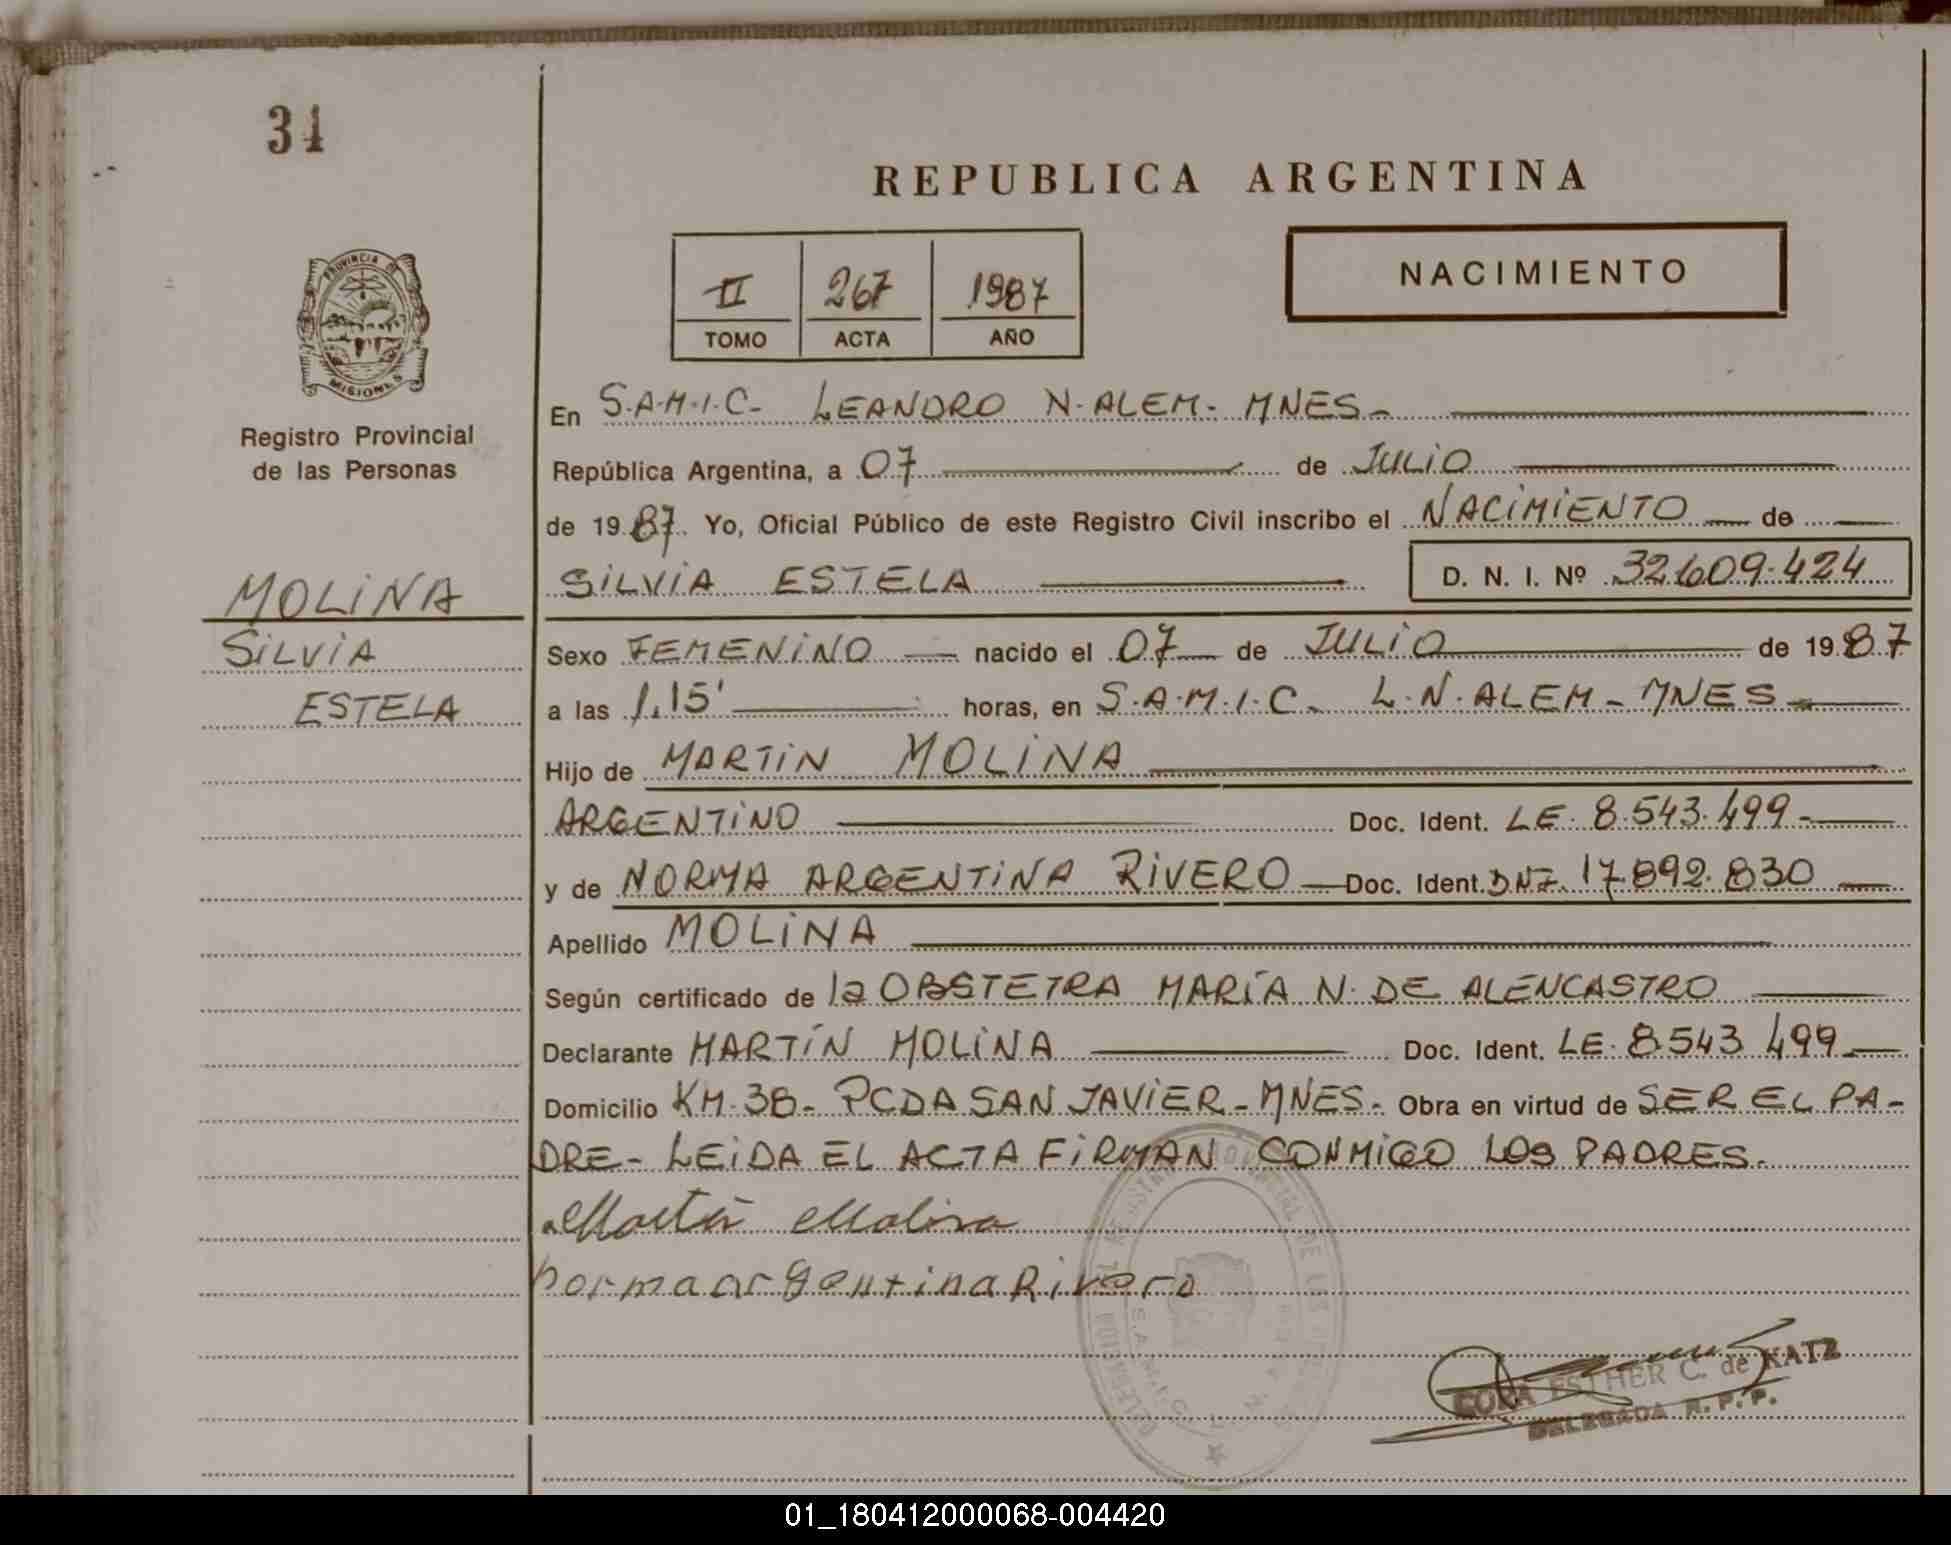 34
REPUBLICA ARGENTINA
II 267 1987
TOMO ACTA AÑO
NACIMIENTO
PROVINCIA DE
MISIONES
Registro Provincial
de las Personas
MOLINA
SILVIA
ESTELA
En S.A.M.I.C- LEANDRO N. ALEM- MNES-
República Argentina, a 07 de JULIO
de 19 87. Yo, Oficial Público de este Registro Civil inscribo el NACIMIENTO de
SILVIA ESTELA D. N. I. Nº 32.609.424
Sexo FEMENINO nacido el 07 de JULIO de 19 87
a las 1.15' horas, en S.A.M.I.C. L.N. ALEM- MNES-
Hijo de MARTIN MOLINA
ARGENTINO Doc. Ident. LE. 8.543.499-
y de NORMA ARGENTINA RIVERO Doc. Ident. DNI. 17.892.830
Apellido MOLINA
Según certificado de la OBSTETRA MARÍA N. DE ALENCASTRO
Declarante MARTÍN MOLINA Doc. Ident. LE. 8.543.499
Domicilio KM.38- PCDA SAN JAVIER-MNES- Obra en virtud de SER EL PA-
DRE- LEIDA EL ACTA FIRMAN CONMIGO LOS PADRES.
Martin Molina
norma argentina Rivero
ESTHER C. de KATZ
DELEGADA R.P.P.
01_180412000068-004420